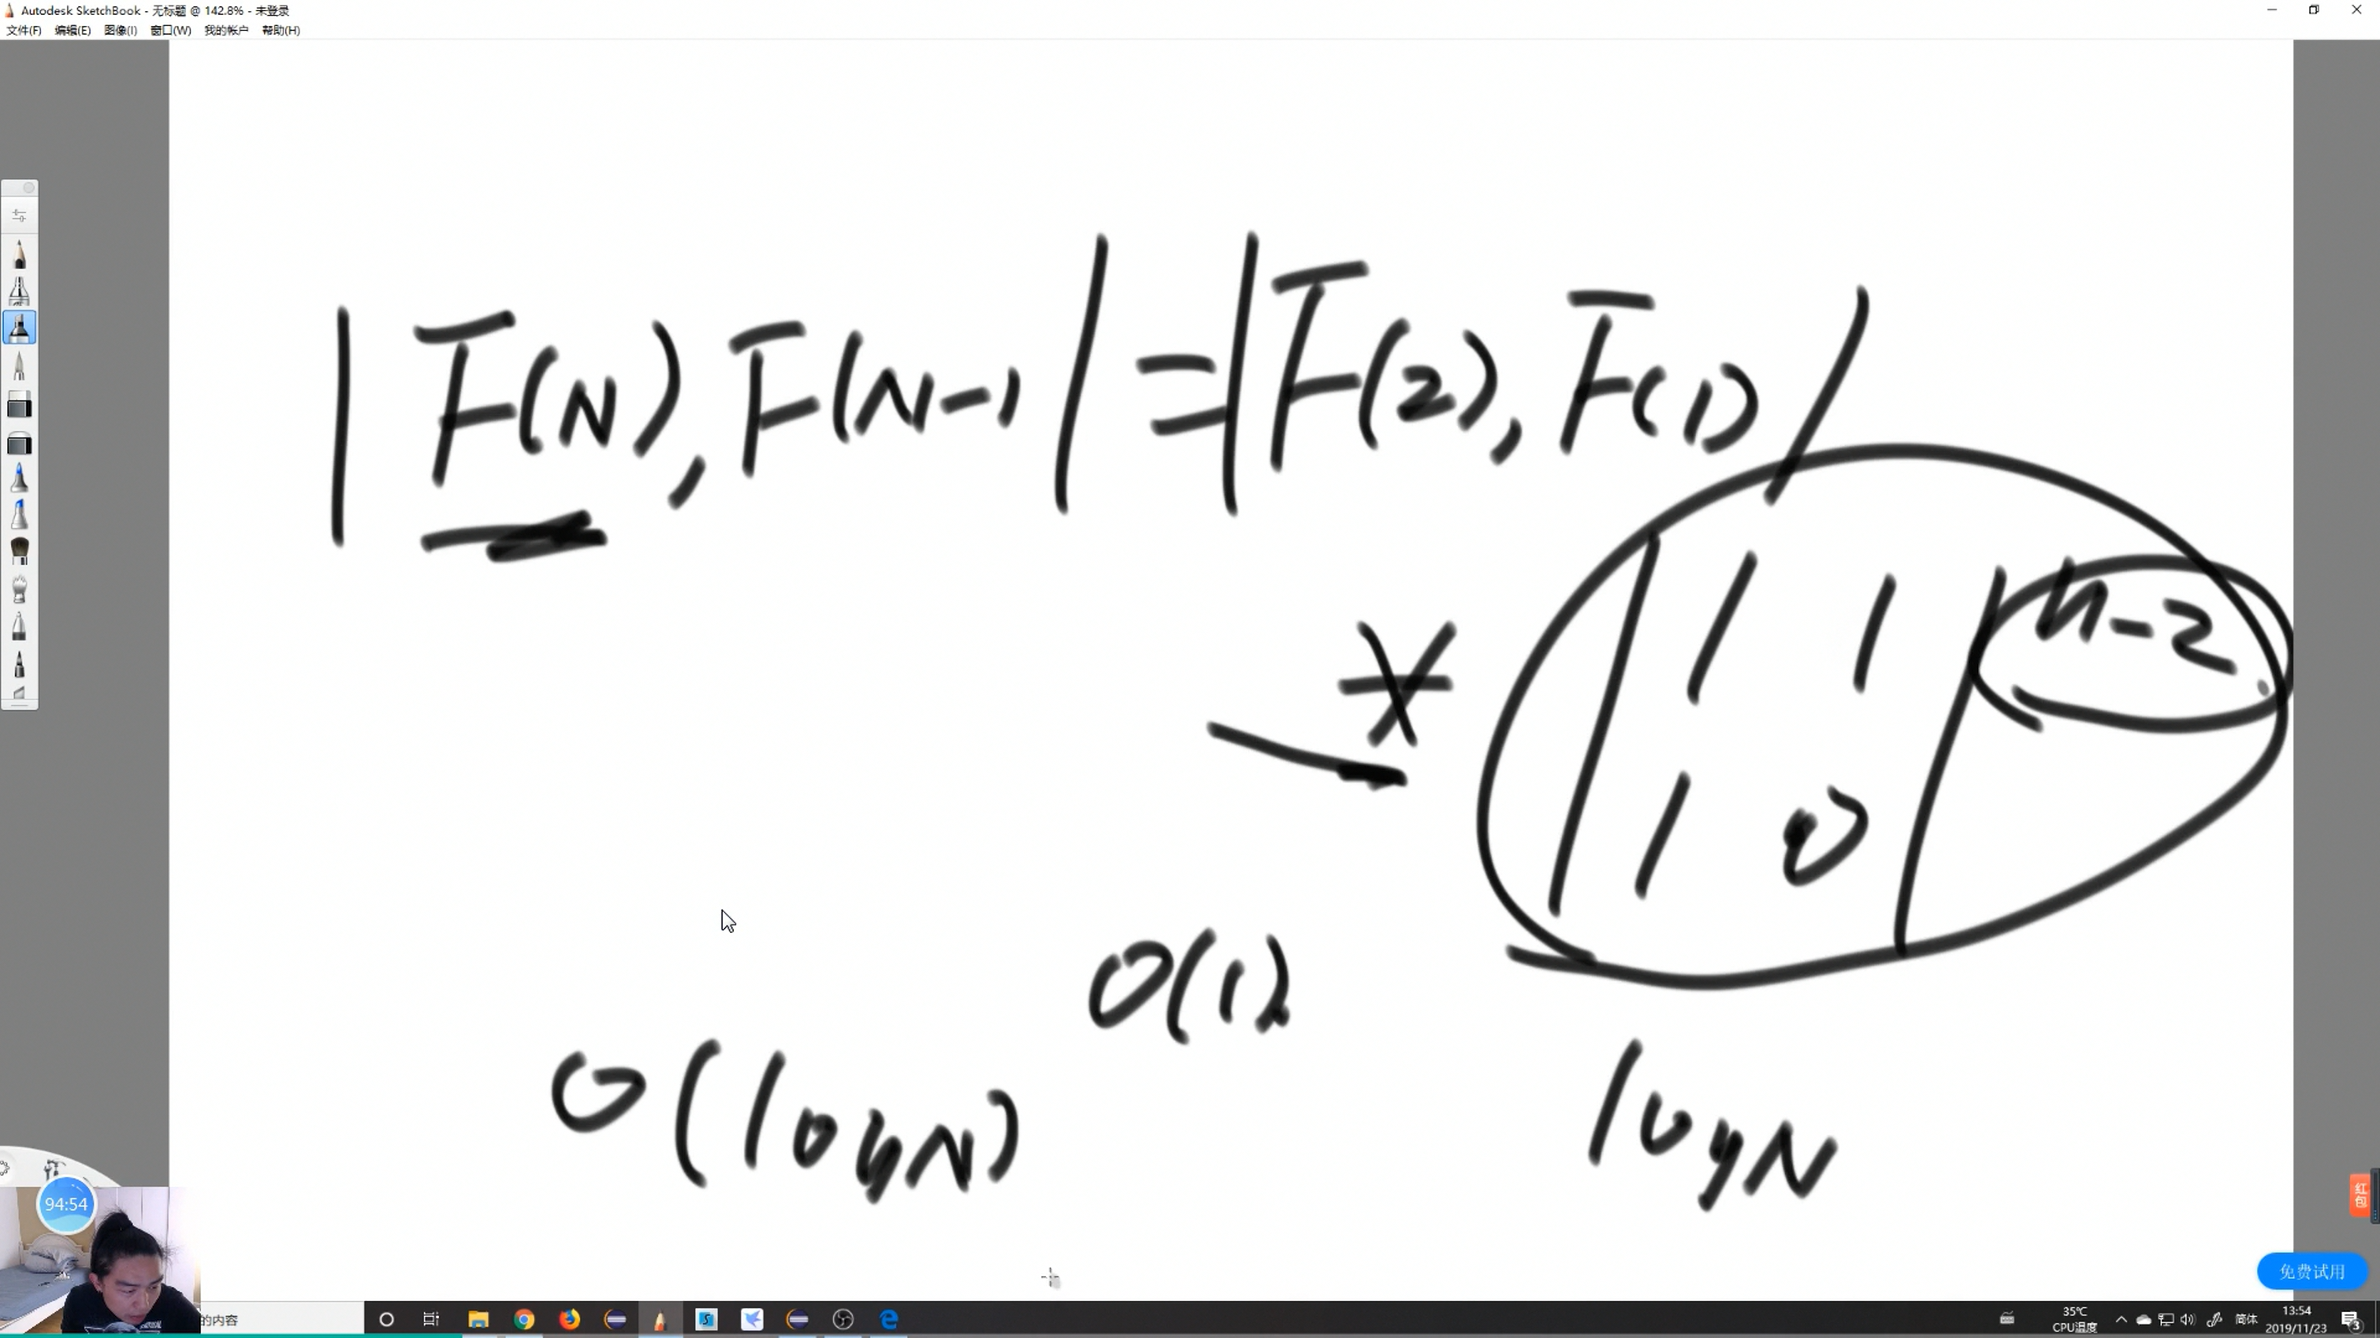 Autodesk SketchBook - 无标题 @ 142.8% - 未登录
文件(F) 编辑(E) 图像(I) 窗口(W) 我的帐户 帮助(H)
|F(N), F(N-1)| = |F(2), F(1)|
* |1 1|n-2
|1 0|
O(1)
O(logN)
logN
94:54
红包
免费试用
的内容
35℃
CPU温度
简体
13:54
2019/11/23
3